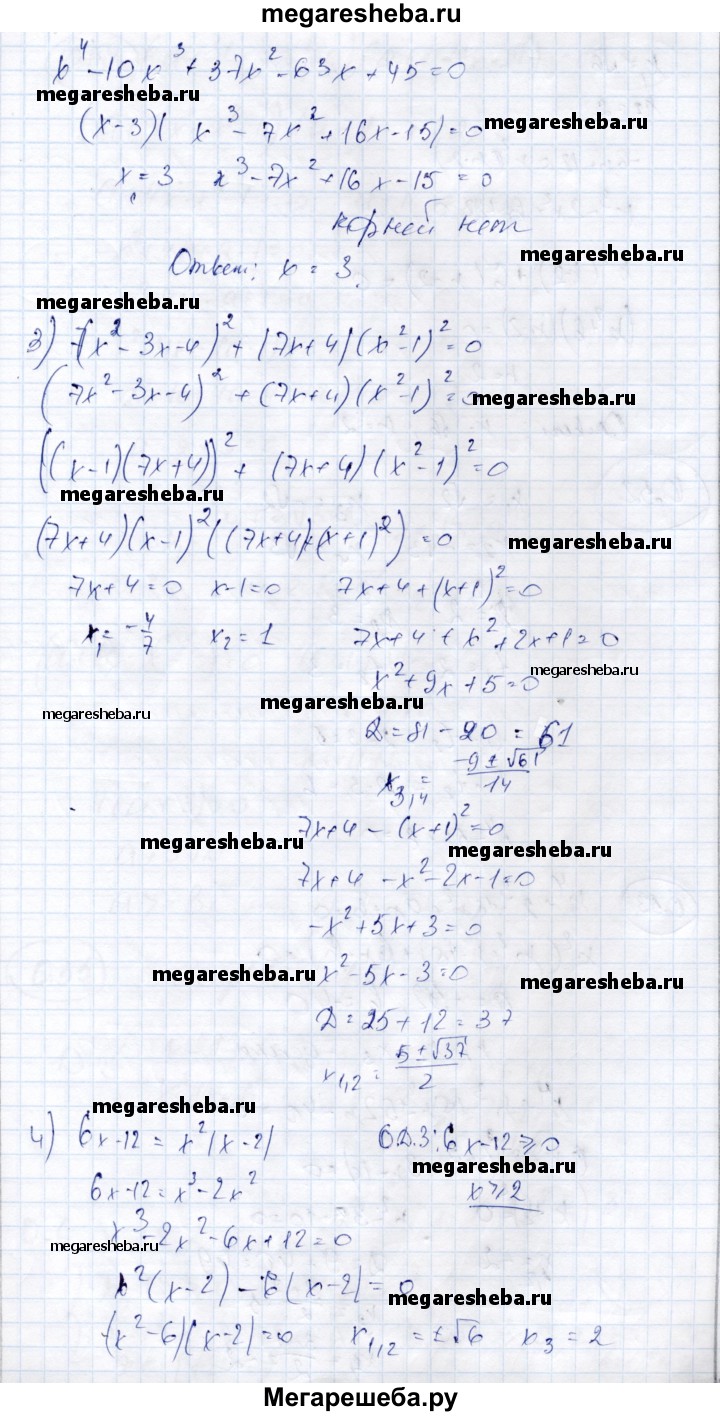 megaresheba.ru
x⁴-10x³+37x²-63x+45=0
megaresheba.ru
(x-3)( x³-7x²+16x-15)=0
megaresheba.ru
x₁=3 x³-7x²+16x-15=0
корней нет
megaresheba.ru
Ответ: x = 3.
megaresheba.ru
3) 7(x²-3x-4)²+(7x+4)(x²-1)²=0
(7x²-3x-4)²+(7x+4)(x²-1)²=0
megaresheba.ru
((x-1)(7x+4))²+(7x+4)(x²-1)²=0
megaresheba.ru
(7x+4)(x-1)²((7x+4)+(x+1)²)=0
megaresheba.ru
7x+4=0 x-1=0 7x+4+(x+1)²=0
x₁=-4/7 x₂=1 7x+4+x²+2x+1=0
megaresheba.ru
x²+9x+5=0
megaresheba.ru
megaresheba.ru
D=81-20=61
x₃,₄=(-9±√61)/14
7x+4-(x+1)²=0
megaresheba.ru
megaresheba.ru
7x+4-x²-2x-1=0
-x²+5x+3=0
megaresheba.ru
x²-5x-3=0
megaresheba.ru
D=25+12=37
x₁,₂=(5±√37)/2
megaresheba.ru
4) 6x-12=x²(x-2) ОДЗ: 6x-12≥0
megaresheba.ru
6x-12=x³-2x² x≥2
x³-2x²-6x+12=0
megaresheba.ru
x²(x-2)-6(x-2)=0
megaresheba.ru
(x²-6)(x-2)=0 x₁,₂=±√6 x₃=2
Мегарешеба.ру